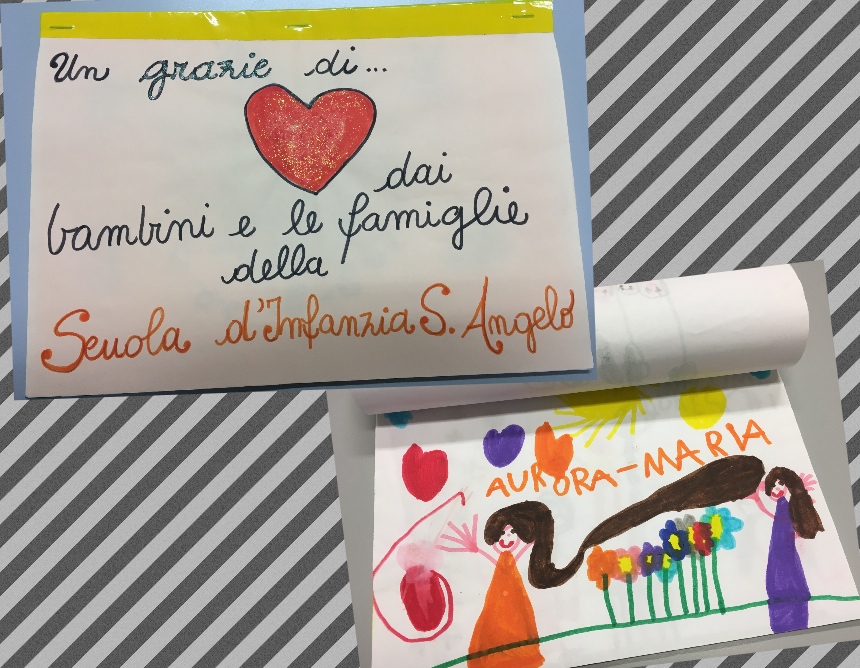 Un grazie di...
dai
bambini e le famiglie
della
Scuola d'Infanzia S. Angelo
AURORA-MARIA